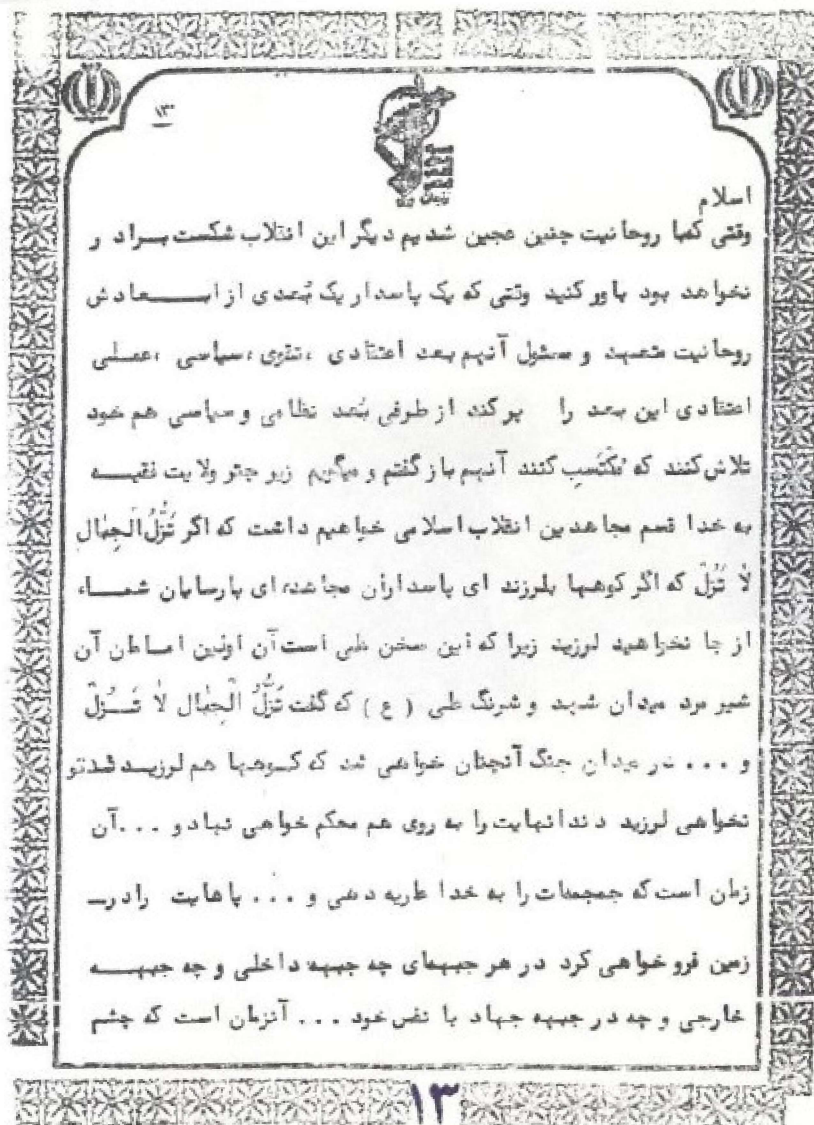 ۱۳
اسلام
وقتی که با روحانیت چنین عجین شدیم دیگر این انقلاب شکست بردار
نخواهد بود باور کنید وقتی که یک پاسدار یک بُعدی از ابعادش
روحانیت متعهد و مسئول آنهم بعد اعتقادی ، تقوی ، سیاسی ، عملی
اعتقادی این بعد را پر کند از طرفی بُعد نظامی و سیاسی هم خود
تلاش کنند که مُکتَسِب کنند آنهم باز گفتم و میگویم زیر چتر ولایت فقیه
به خدا قسم مجاهدین انقلاب اسلامی خواهیم داشت که اگر تَزُلُ الجِبٰال
لاٰ تَزُلْ که اگر کوهها بلرزند ای پاسداران مجاهد، ای پارسایان شما،
از جا نخواهید لرزید زیرا که این سخن علی است آن اولین امامان آن
شیر مرد میدان شهد و شرنگ علی ( ع ) که گفت تَزُلُ الْجِبٰال لاٰ تَزُلْ
و . . . در میدان جنگ آنچنان خواهی شد که کوهها هم لرزید شدتو
نخواهی لرزید دندانهایت را به روی هم محکم خواهی نهاد و . . . آن
زمان است که جمجمهات را به خدا عاریه دهی و . . . پاهایت را در
زمین فرو خواهی کرد در هر جبههای چه جبهه داخلی و چه جبهه
خارجی و چه در جبهه جهاد با نفس خود . . . آنزمان است که چشم
۱۳